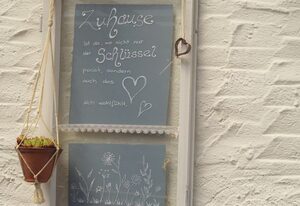 Zuhause
ist da, wo nicht nur
der Schlüssel
passt, sondern
auch das
sich wohlfühlt